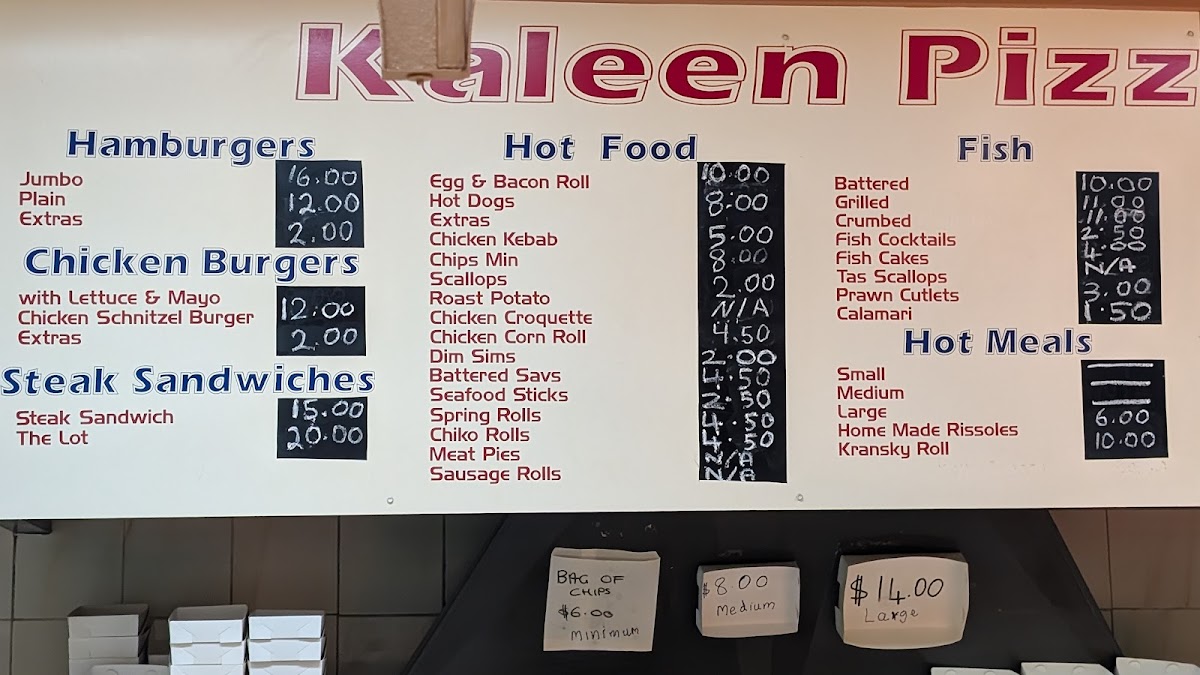 Kaleen Pizz
Hamburgers
Jumbo
Plain
Extras
16.00
12.00
2.00
Chicken Burgers
with Lettuce & Mayo
Chicken Schnitzel Burger
Extras
12.00
2.00
Steak Sandwiches
Steak Sandwich
The Lot
15.00
20.00
Hot Food
Egg & Bacon Roll
Hot Dogs
Extras
Chicken Kebab
Chips Min
Scallops
Roast Potato
Chicken Croquette
Chicken Corn Roll
Dim Sims
Battered Savs
Seafood Sticks
Spring Rolls
Chiko Rolls
Meat Pies
Sausage Rolls
10.00
8.00
5.00
8.00
2.00
N/A
4.50
2.00
4.50
2.50
4.50
4.50
N/A
N/A
Fish
Battered
Grilled
Crumbed
Fish Cocktails
Fish Cakes
Tas Scallops
Prawn Cutlets
Calamari
10.00
11.00
11.00
2.50
4.00
N/A
3.00
1.50
Hot Meals
Small
Medium
Large
Home Made Rissoles
Kransky Roll
6.00
10.00
BAG OF
CHIPS
$6.00
minimum
$8.00
Medium
$14.00
Large